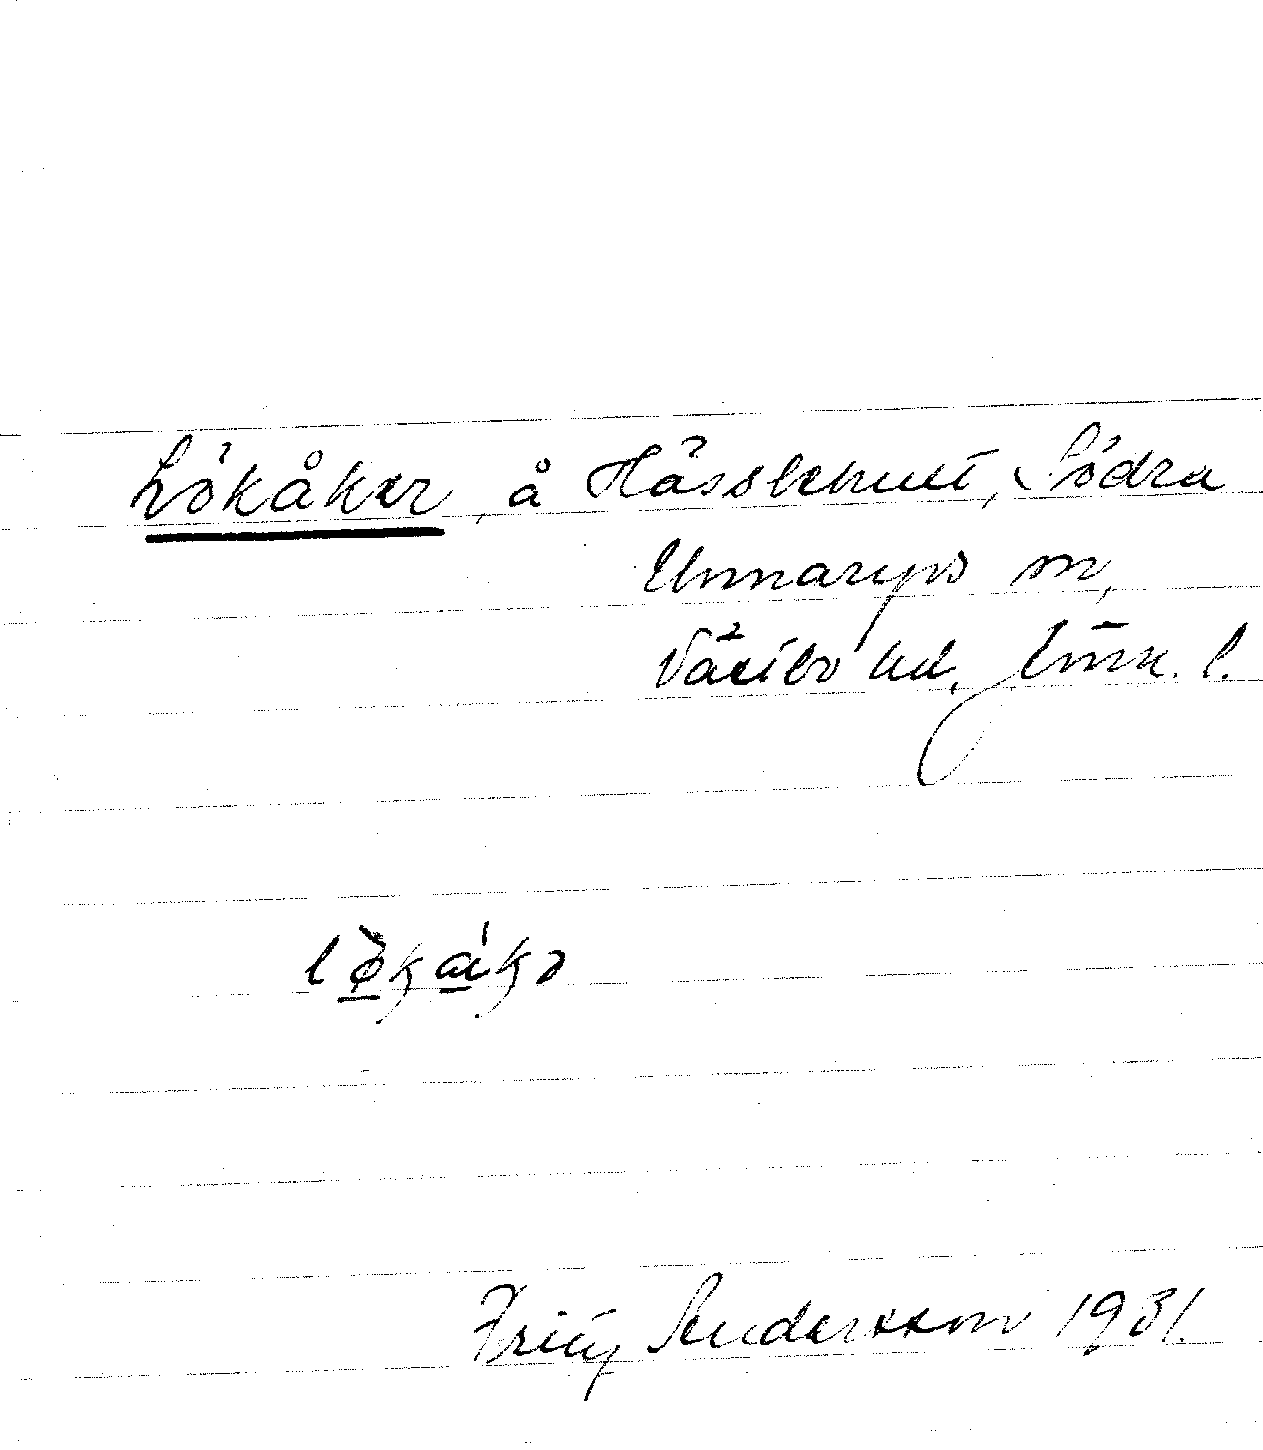 Lökåker, å Hässlehult, Södra
Unnaryds sn,
Västbo hd, Jönk. l.
Fritz Andersson 1931.